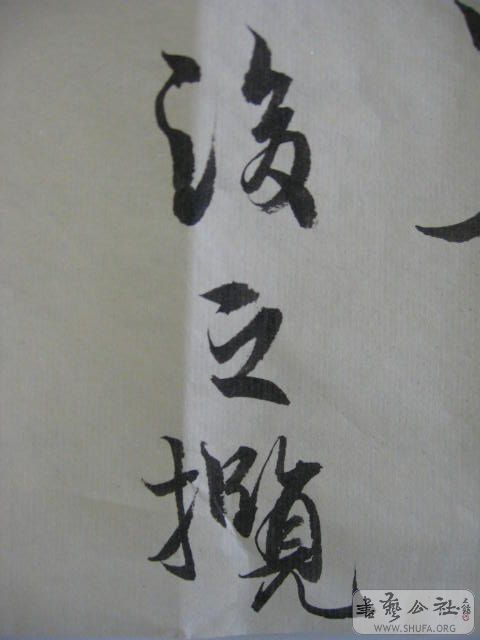 後之攬
書藝公社
WWW.SHUFA.ORG